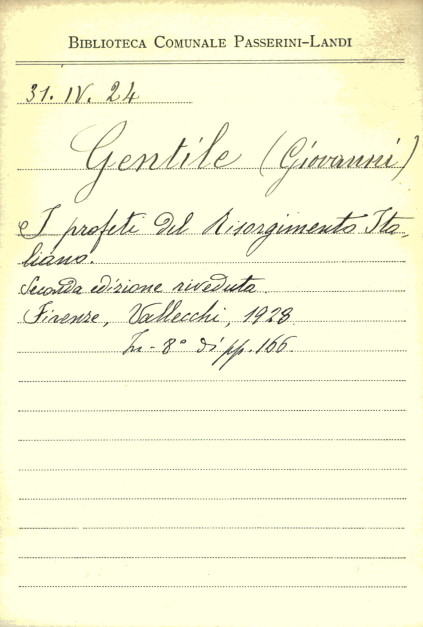 BIBLIOTECA COMUNALE PASSERINI-LANDI
31. IV. 24
Gentile (Giovanni)
I profeti del Risorgimento Ita-
liano.
Seconda edizione riveduta.
Firenze, Vallecchi, 1928
In-8° di pp. 166.